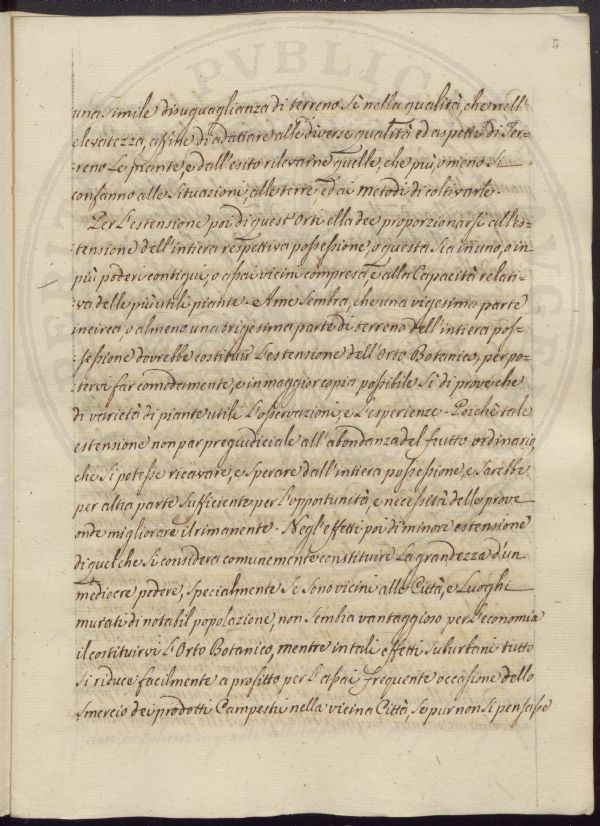 5
una simile disuguaglianza di terreno sì nella qualità, che nell'
elevatezza, affine di adattare alle diverse qualità ed aspetti di Ter=
=reno le piante, e dall'esito rilevarne quelle, che più, o meno si
confanno alle Situazioni, alle terre, ed ai metodi di coltivarle.
Per l'estensione poi di quest'Orti ella dee proporzionarsi all'es=
tensione dell'intiera respettiva possessione, o questa sia in uno, o in
più poderi contigui, o assai vicini compresa, e alla Capacità relati=
=va delle più utili piante. A me Sembra, che una vigesima parte
incirca, o almeno una trigesima parte di terreno dell'intiera pos=
=sessione dovrebbe costituir l'estensione dell'Orto Botanico, per po=
tervi far comodamente, e in maggior copia possibile sì di prove che
di varietà di piante utili l'osservazioni, e l'esperienze. Poichè tale
estensione non par pregiudiciale all'abondanza del frutto ordinario,
che si potesse ricavare, e sperare dall'intiera possessione, e Sarebbe
per altra parte Sufficiente per l'opportunità, e necessità delle prove
onde migliorare il rimanente. Negl'effetti poi di minore estensione
di quel che si considera comunemente constituire la grandezza d'un
mediocre podere, Specialmente Se Sono vicini alle Città, e Luoghi
murati di notabil popolazione, non Sembra vantaggioso per l'economia
il costituirvi l'Orto Botanico, mentre in tali effetti Suburbani tutto
si riduce facilmente a profitto per l'assai frequente occasione dello
Smercio dei prodotti Campestri nella vicina Città, Se pur non si pensasse